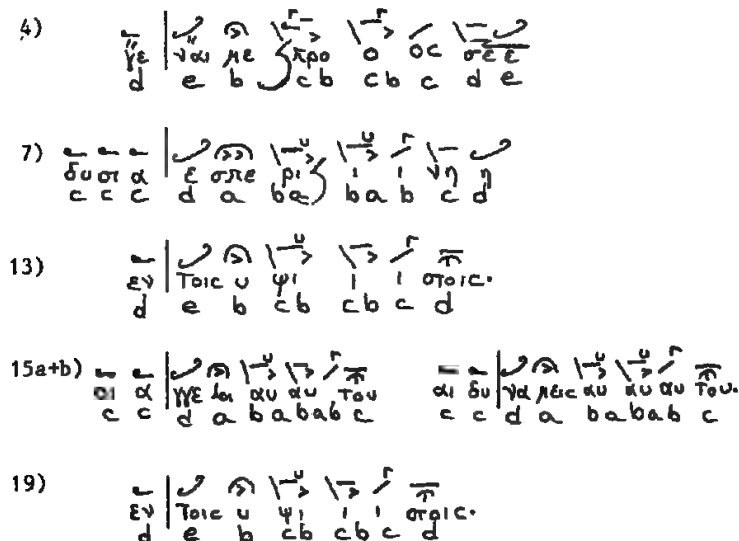 4) γε | ναι με προ ο ος σε ε
d e b cb cb c d e
7) δυ σι α | ε σπε ρι ι ι νη η
c c c d a ba ba b c d
13) εν | τοις υ ψι ι ι στοις.
d e b cb cb c d
15a+b) αι α | γγε λοι αυ αυ του αι δυ | να μεις αυ αυ αυ του.
c c d a ba bab c c c d a ba bab c
19) εν | τοις υ ψι ι ι στοις.
d e b cb cb c d